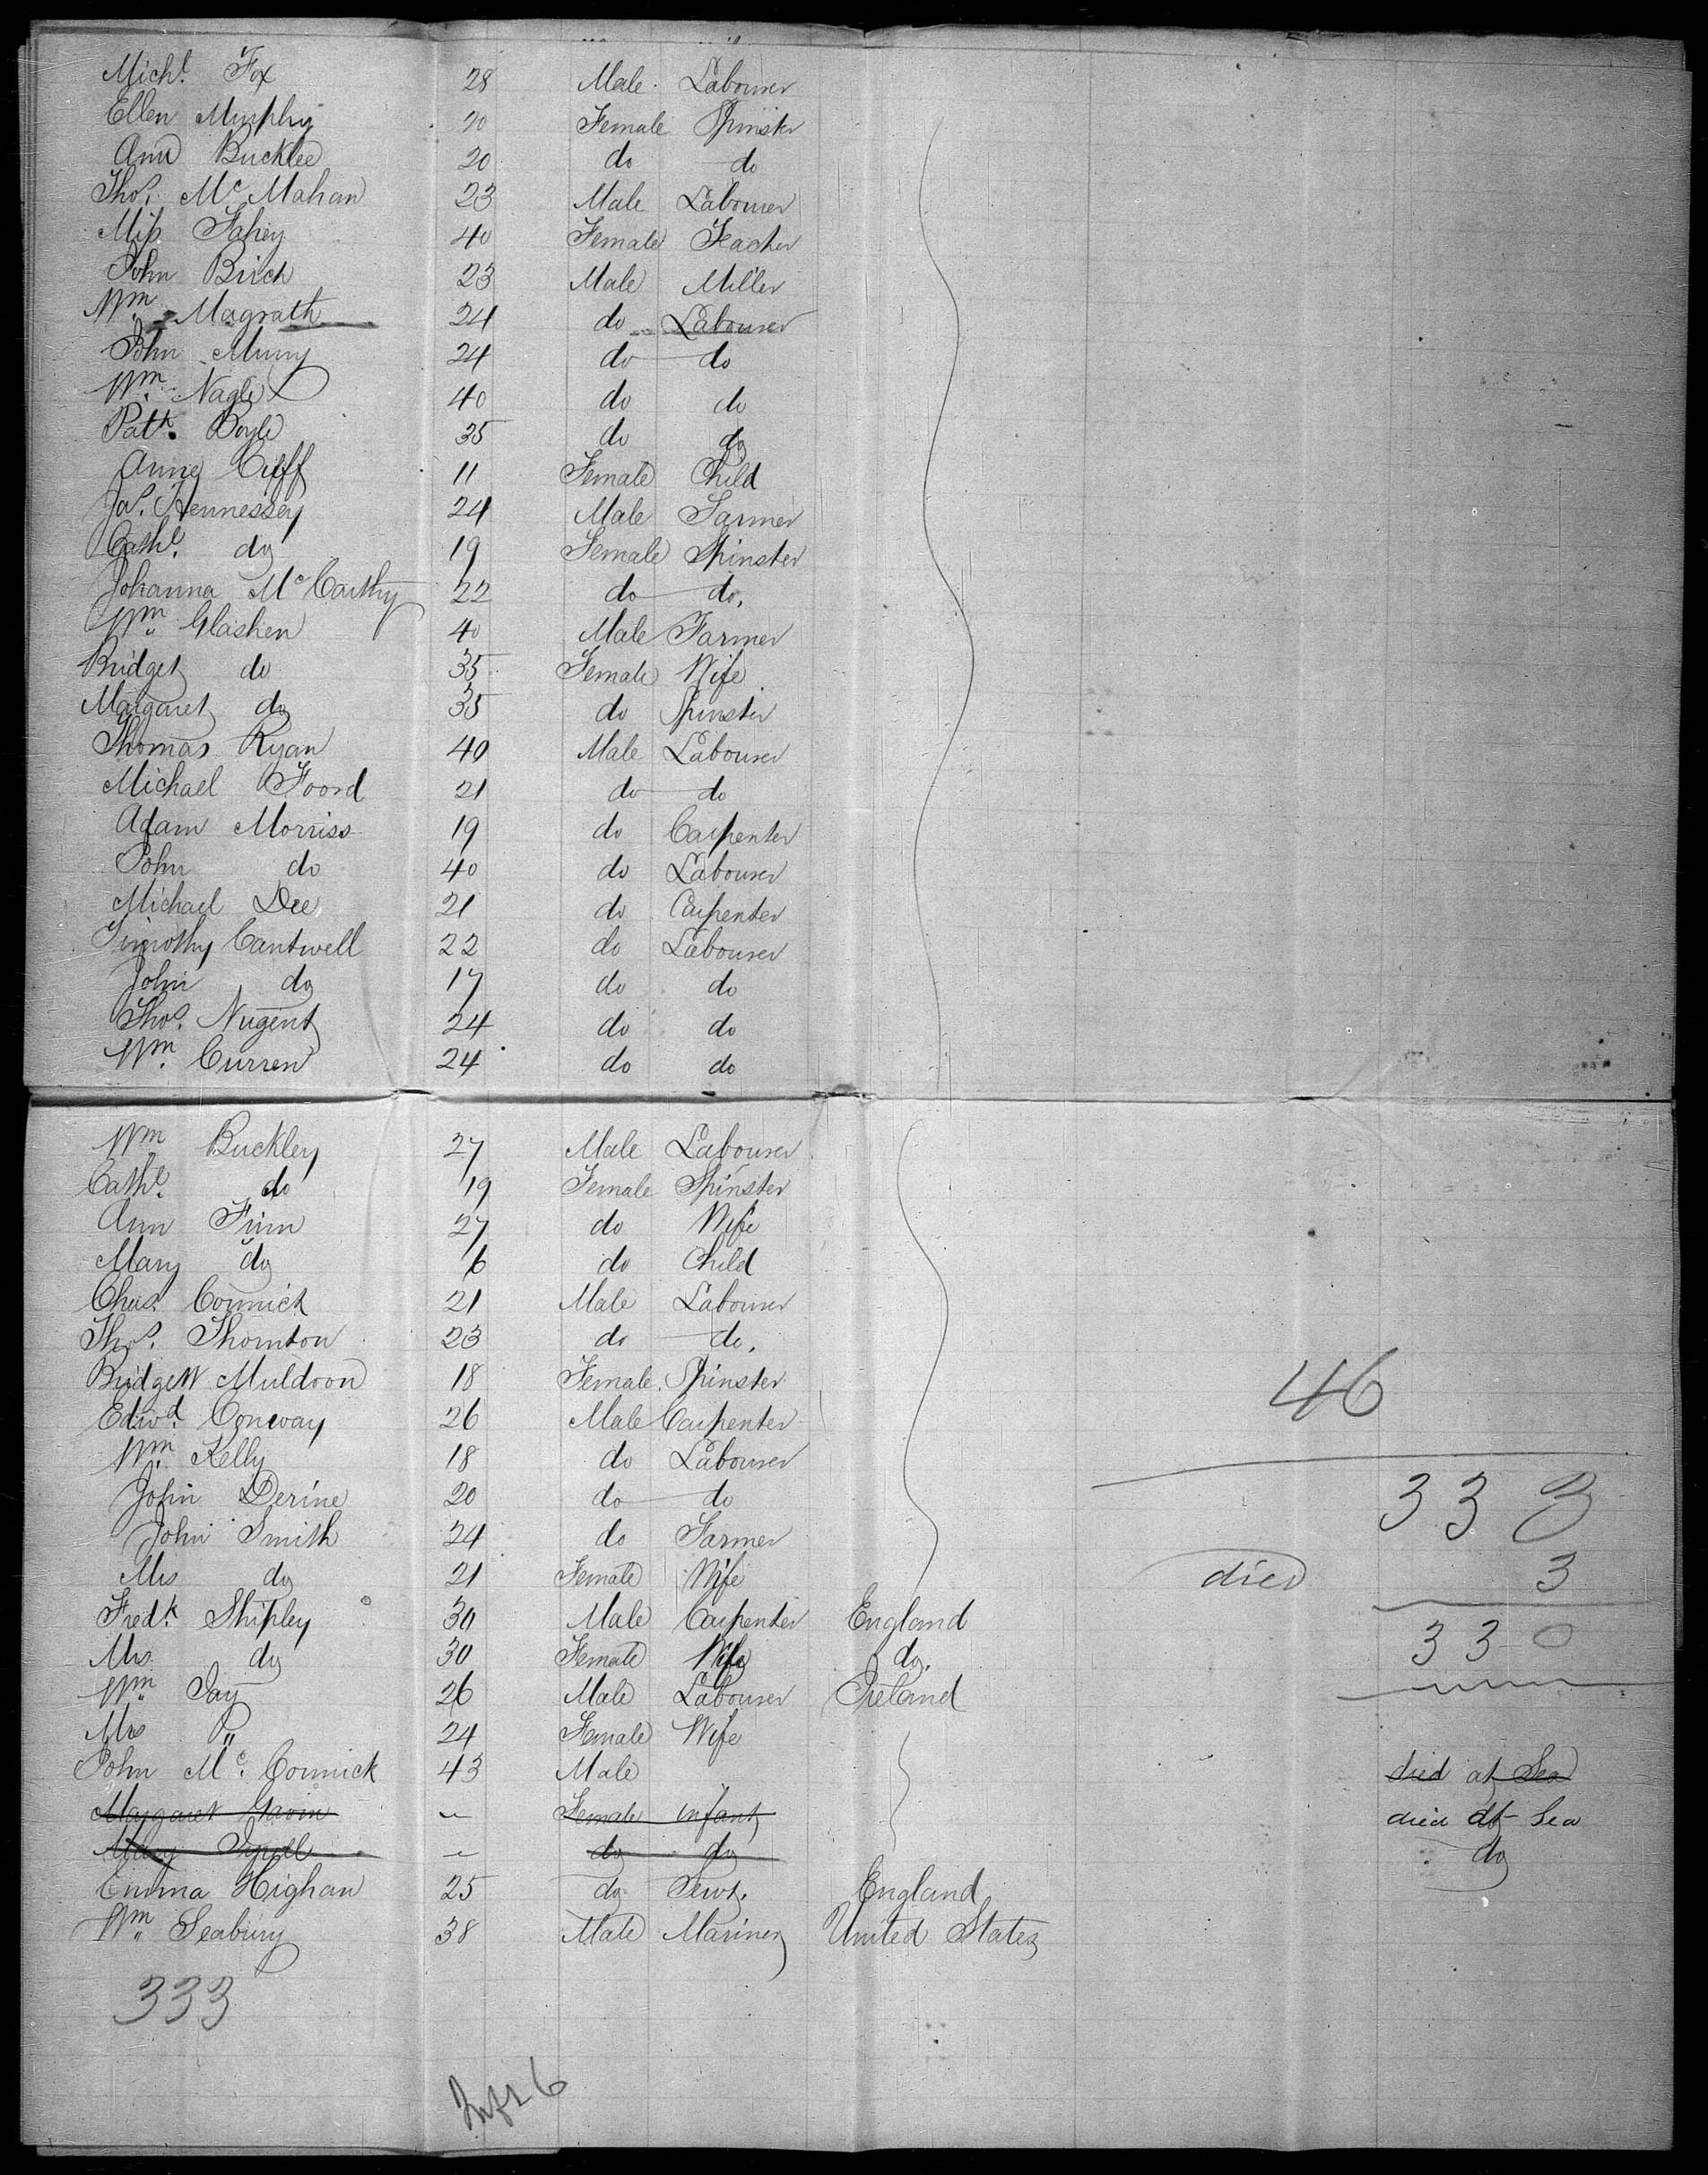 Michl. Fox 28 Male Labourer
Ellen Murphy 20 Female Spinster
Ann Bucklee 20 do do
Thos. McMahan 23 Male Labourer
Miss Fahey 40 Female Teacher
John Birch 23 Male Miller
Wm. Magrath 24 do Labourer
John 24 do do
Wm. Nagle 40 do do
Patk. Boyle 35 do do
Anne Cuff 11 Female Child
Jas. Hennessey 24 Male Farmer
Cathe. do 19 Female Spinster
Johanna McCarthy 22 do do.
Wm. Glashen 40 Male Farmer
Bridget do 35 Female Wife
Margaret do 35 do Spinster
Thomas Ryan 40 Male Labourer
Michael Foord 21 do do
Adam Morriss 19 do Carpenter
John do 40 do Labourer
Michael Dee 21 do Carpenter
Timothy Cantwell 22 do Labourer
John do 17 do do
Thos. Nugent 24 do do
Wm. Curren 24 do do
Wm Buckley 27 Male Labourer
Cathe. do 19 Female Spinster
Ann Finn 27 do Wife
Mary do 6 do Child
Chas. Cormick 21 Male Labourer
Thos. Thornton 23 do do.
Bridgett Muldoon 18 Female Spinster
46
Edwd. Conway 26 Male Carpenter
Wm. Kelly 18 do Labourer
John Derine 20 do do
333
John Smith 24 do Farmer
Mrs do 21 Female Wife
died 3
Fredk. Shipley 30 Male Carpenter England
330
Mrs do 30 Female Wife do.
Wm. Jay 26 Male Labourer Ireland
Mrs " 24 Female Wife
John Mc. Cormick 43 Male died at Sea
Margaret Gavin – Female infant died at Sea
Mary – do do do
Emma Highan 25 do Servt. England
Wm. Seabury 38 Male Mariner United States
333
Inft 6